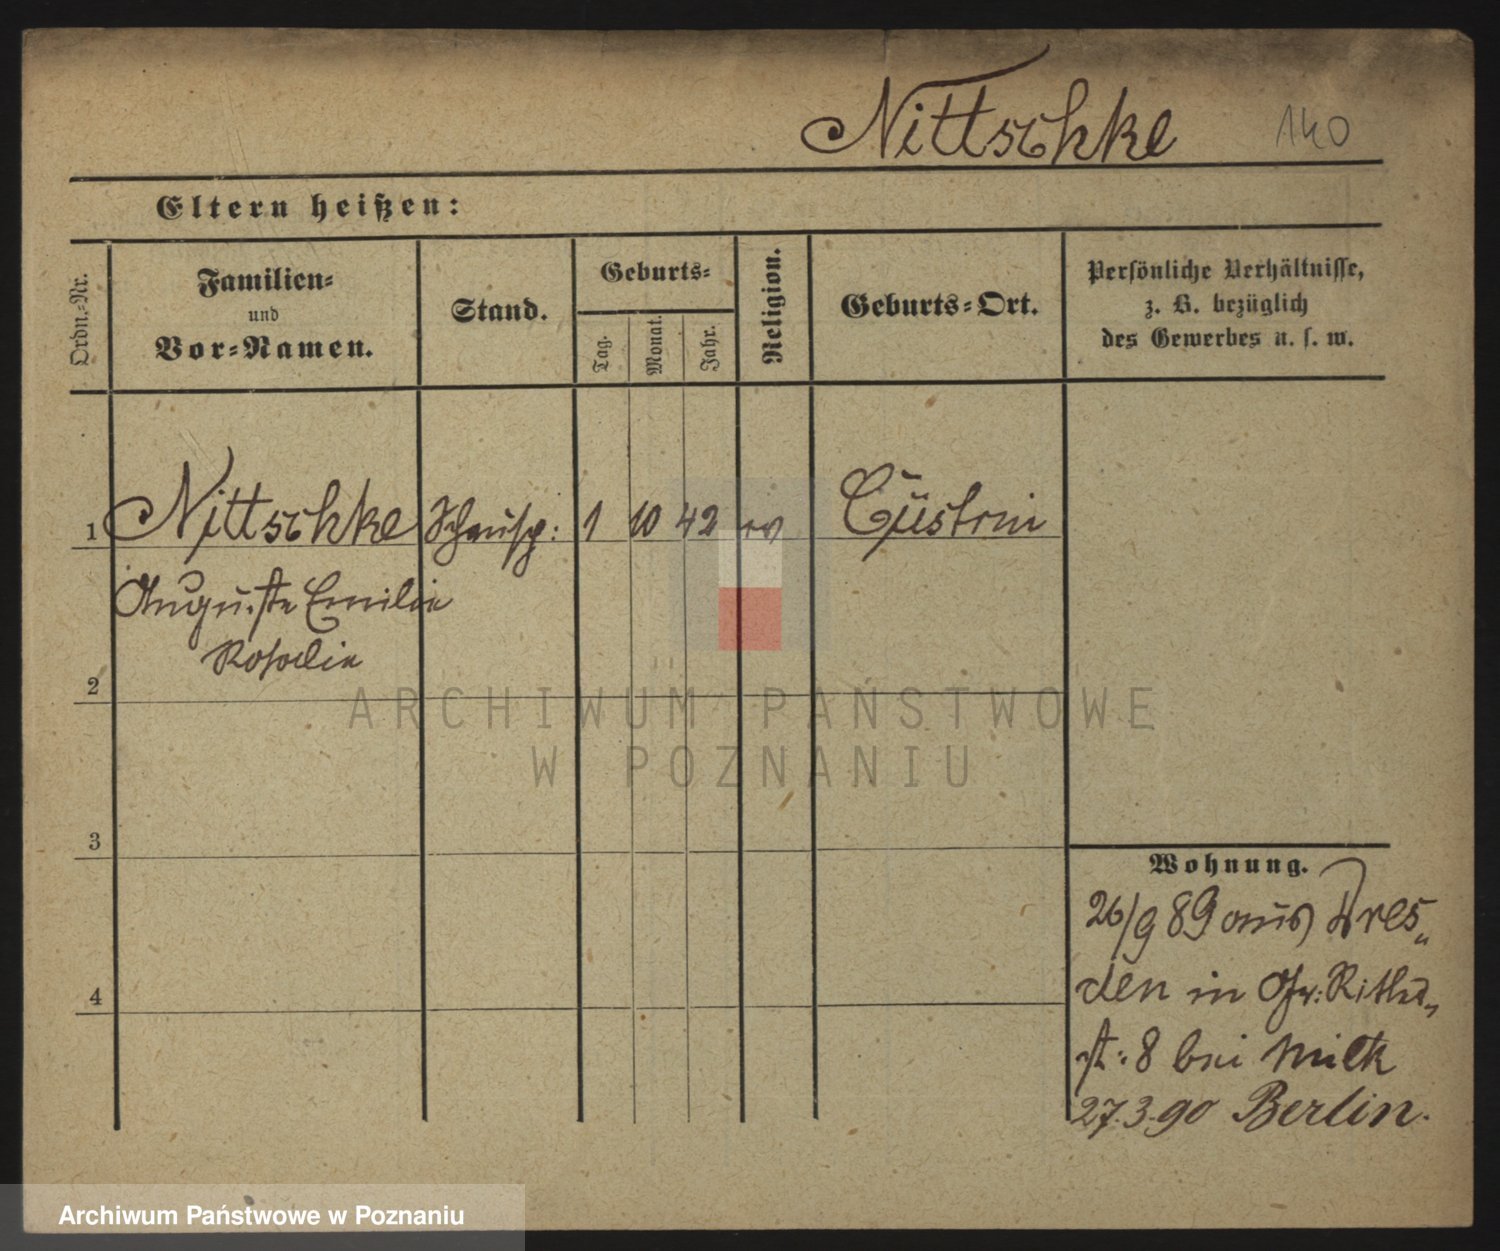 Nittschke 140
Eltern heißen:
Ordn.-Nr.
Familien-
und
Vor-Namen.
Stand.
Geburts-
Tag.
Monat.
Jahr.
Religion.
Geburts-Ort.
Persönliche Verhältnisse,
z. B. bezüglich
des Gewerbes u. s. w.
1 Nittschke Schausp: 1 10 42 ev Cüstrin
Auguste Emilie
Rosalie
2
ARCHIWUM PAŃSTWOWE
W POZNANIU
3
Wohnung.
26/9 89 aus Dres„
den in Gr: Ritter„
4
st: 8 bei Milk
27.3.90 Berlin.
Archiwum Państwowe w Poznaniu